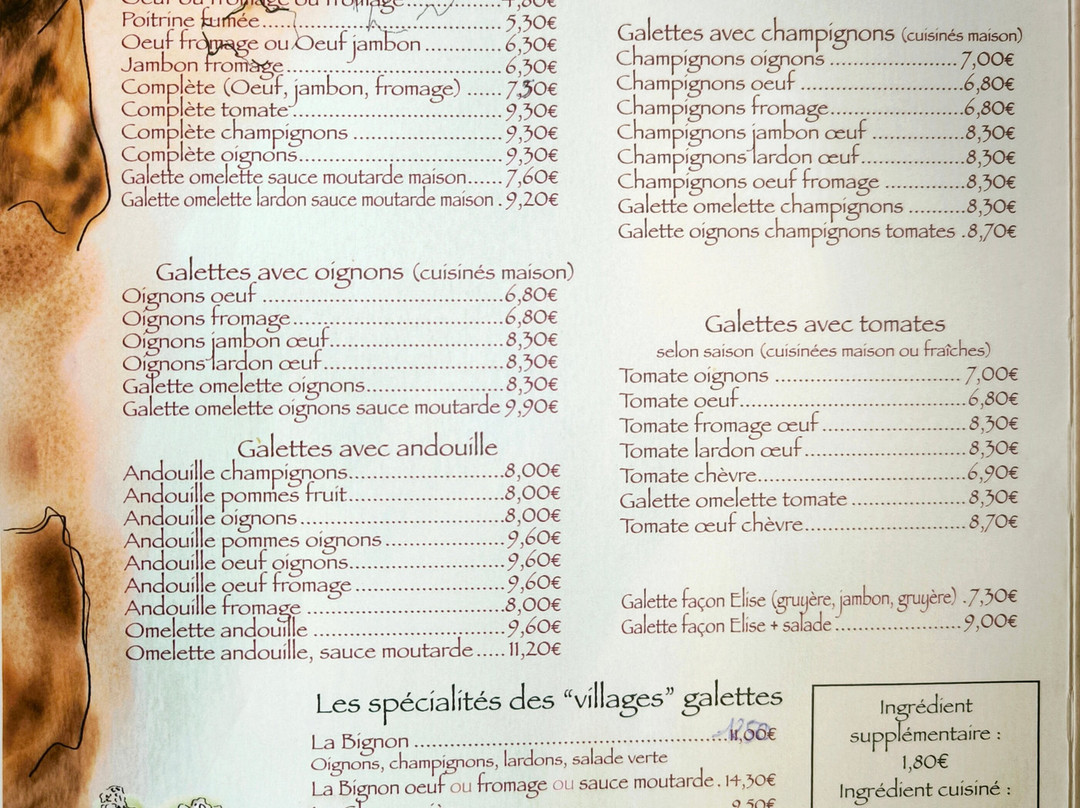 Oeuf ou fromage ou fromage.......................4,80€
Poitrine fumée..............................5,30€
Oeuf fromage ou Oeuf jambon ............6,30€
Jambon fromage..............................6,30€
Complète (Oeuf, jambon, fromage) ......7,30€
Complète tomate..............................9,30€
Complète champignons ......................9,30€
Complète oignons..............................9,30€
Galette omelette sauce moutarde maison......7,60€
Galette omelette lardon sauce moutarde maison .9,20€
Galettes avec oignons (cuisinés maison)
Oignons oeuf ..............................6,80€
Oignons fromage..............................6,80€
Oignons jambon œuf..............................8,30€
Oignons lardon œuf..............................8,30€
Galette omelette oignons......................8,30€
Galette omelette oignons sauce moutarde 9,90€
Galettes avec andouille
Andouille champignons......................8,00€
Andouille pommes fruit......................8,00€
Andouille oignons..............................8,00€
Andouille pommes oignons..................9,60€
Andouille oeuf oignons......................9,60€
Andouille oeuf fromage......................9,60€
Andouille fromage ..........................8,00€
Omelette andouille ..........................9,60€
Omelette andouille, sauce moutarde.....11,20€
Galettes avec champignons (cuisinés maison)
Champignons oignons ...................7,00€
Champignons oeuf .......................6,80€
Champignons fromage...................6,80€
Champignons jambon œuf .............8,30€
Champignons lardon œuf...............8,30€
Champignons oeuf fromage ............8,30€
Galette omelette champignons .........8,30€
Galette oignons champignons tomates .8,70€
Galettes avec tomates
selon saison (cuisinées maison ou fraîches)
Tomate oignons ...........................7,00€
Tomate oeuf..............................6,80€
Tomate fromage œuf.....................8,30€
Tomate lardon œuf.......................8,30€
Tomate chèvre............................6,90€
Galette omelette tomate ...............8,30€
Tomate œuf chèvre.......................8,70€
Galette façon Elise (gruyère, jambon, gruyère) .7,30€
Galette façon Elise + salade..................9,00€
Les spécialités des “villages” galettes
La Bignon ..........................................11,00€
Oignons, champignons, lardons, salade verte
La Bignon oeuf ou fromage ou sauce moutarde . 14,30€
9,50€
Ingrédient
supplémentaire :
1,80€
Ingrédient cuisiné :